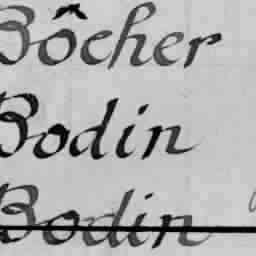 Bôcher
Bodin
Bodin